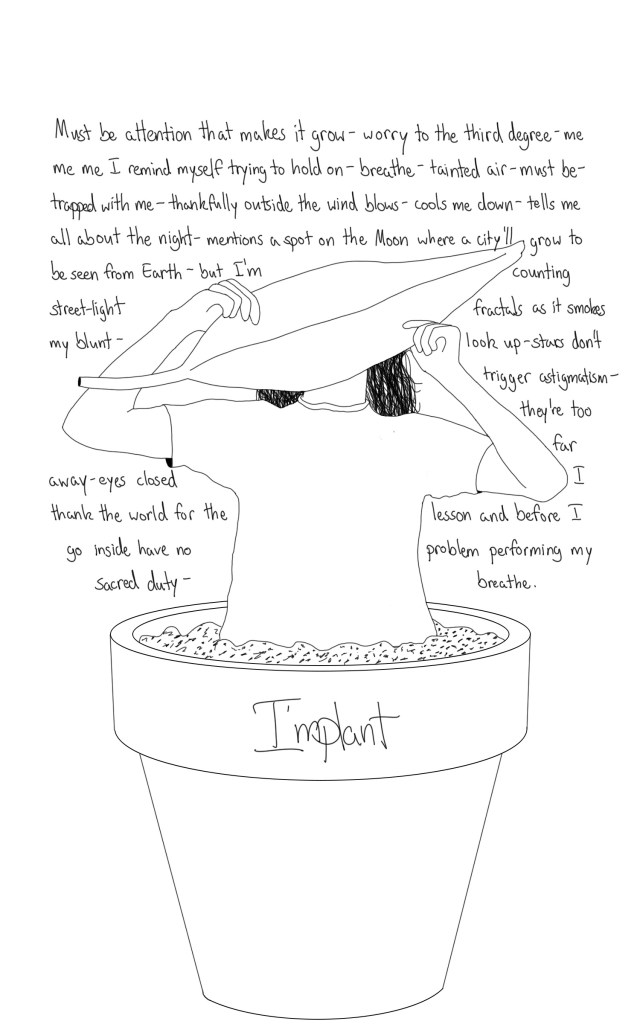 Must be attention that makes it grow- worry to the third degree- me
me me I remind myself trying to hold on- breathe- tainted air- must be-
trapped with me- thankfully outside the wind blows- cools me down- tells me
all about the night- mentions a spot on the Moon where a city'll grow to
be seen from Earth- but I'm counting
street-light fractals as it smokes
my blunt- look up- stars don't
trigger astigmatism-
they're too
far
away- eyes closed I
thank the world for the lesson and before I
go inside have no problem performing my
sacred duty- breathe.
I'mplant